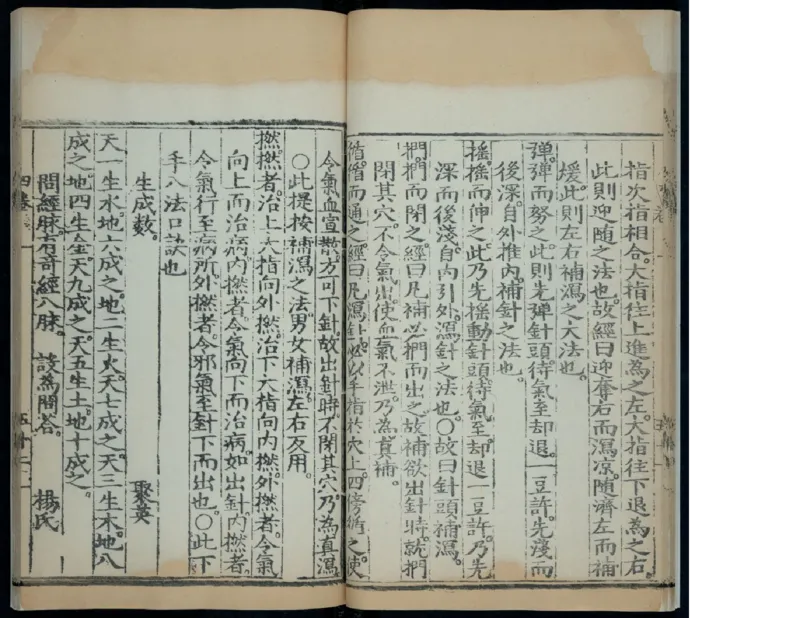 指次指相合。大指往上進為之左。大指往下退為之右。
此則迎隨之法也。故經曰迎奪右而瀉凉。隨濟左而補
煖。此則左右補瀉之大法也。
彈彈而努之。此則先彈針頭待氣至却退一豆許。先淺而
後深。自外推内。補針之法也。
搖搖而伸之。此乃先搖動針頭待氣至。却退一豆許。乃先
深而後淺。自内引外。瀉針之法也。○故曰針頭補瀉。
捫捫而閉之。經曰凡補必捫而出之。故補欲出針時。就捫
閉其穴。不令氣出。使血氣不泄。乃為真補。
循循而通之。經曰凡瀉針必以手指於穴上。四傍循之。使
令氣血宣散。方可下針。故出針時。不閉其穴。乃為真瀉。
○此提按補瀉之法。男女補瀉左右反用。
撚撚者。治上大指向外撚。治下大指向内撚。外撚者。令氣
向上而治病。内撚者。令氣向下而治病。如出針。内撚者。
令氣行至病所。外撚者。令邪氣至針下而出也。○此下
手八法口訣也
生成數。 聚英
天一生水。地六成之。地二生火。天七成之。天三生木。地八
成之。地四生金。天九成之。天五生土。地十成之。
問經脉有奇經八脉。 設為問答。 楊氏
四卷
五十